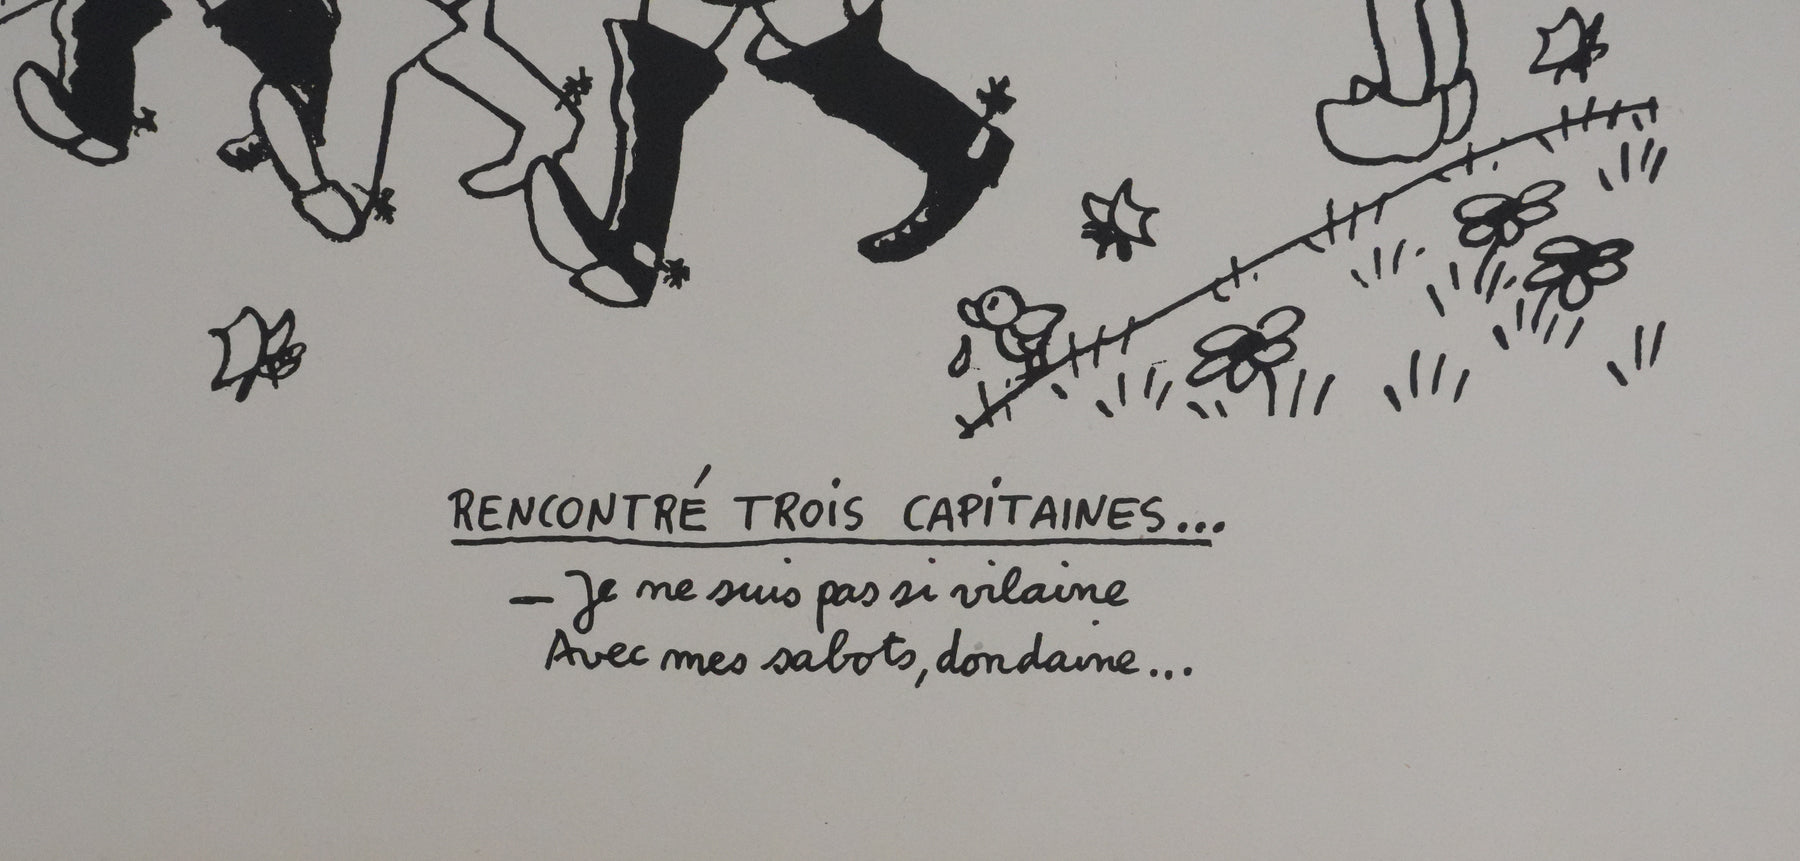 RENCONTRÉ TROIS CAPITAINES...
— Je ne suis pas si vilaine
Avec mes sabots, dondaine...